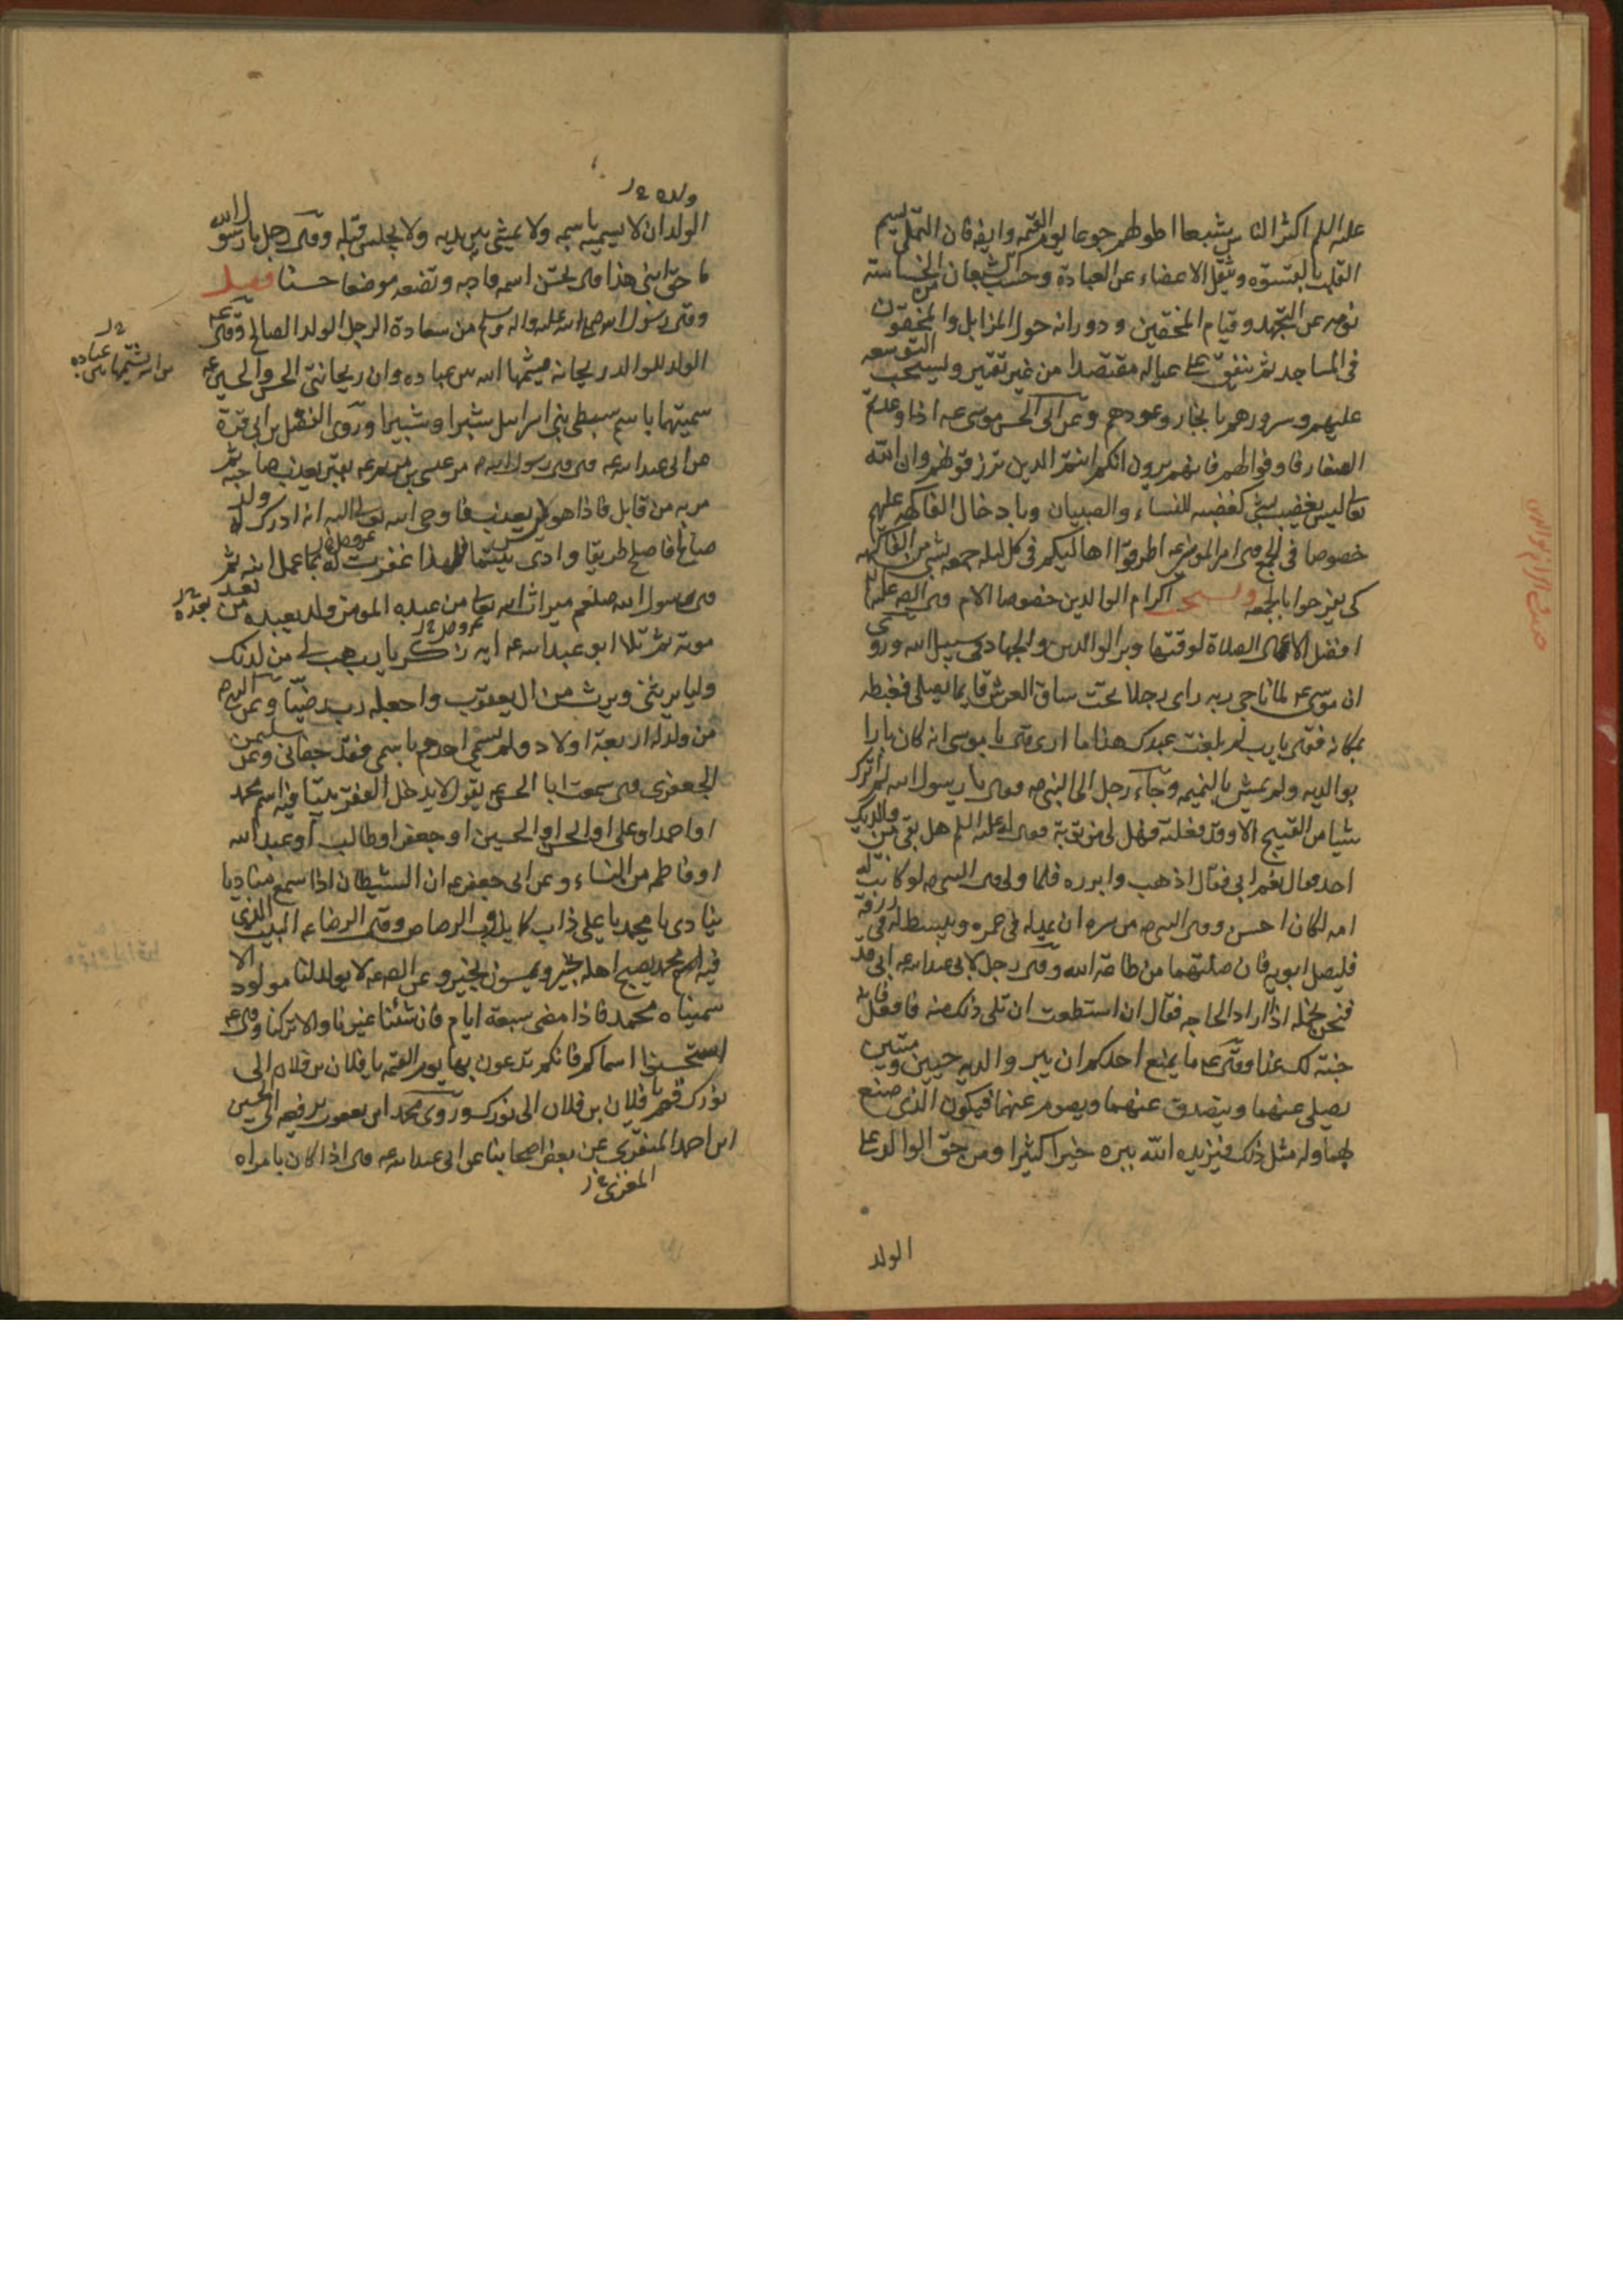 عليه السلم اكثر الناس شبعا اطولهم جوعا يوم القيمه وايضا فان التملى يسم
القلب بالقسوه ويثقل الاعضاء عن العبادة وحسب الشبعان الخساسته
نومه عن التهجد وقيام المخففين ودورانه حول المزابل والمخففون
فى المساجد ثم ينفق على عياله مقتصدا من غير تقتير ويستحب التوسعه
عليهم وسرورهم وعن ابى الحسن موسى عه اذا وعدتم
الصغار فاوفوا لهم فانهم يرون انكم انتم الذين ترزقونهم وان الله
تعالى ليس يغضب بشئ كغضبه للنساء والصبيان وبادخال الفاكهه عليهم
خصوصا فى الجمع قال امير المومنين عه اطرفوا اهاليكم فى كل ليله جمعه بشئ من الفاكهه
كى يفرحوا بالجمعه ويستحب اكرام الوالدين خصوصا الام قال الص عليه
افضل الاعمال الصلاة لوقتها وبر الوالدين والجهاد فى سبيل الله وروى
ان موسى عه لما ناجى ربه راى رجلا تحت ساق العرش قايما يصلى فغبطه
بمكانه فقال يارب بم بلغت عبدك هذا ما ارى قال يا موسى انه كان بارا
بوالديه ولم يمش بالنميمه وجاء رجل الى النبى ص فقال يا رسول الله لم اترك
شيئا من القبيح الا وقد فعلته فهل لى من توبة فقال له عليه السلم هل بقى من والديك
احد فقال نعم ابى فقال اذهب وابرره فلما ولى قال النبى ص لو كانت له
امه لكان احسن وقال النبى ص من سره ان يمد له فى عمره ويبسط له فى رزقه
فليصل ابويه فان صلتهما من طاعة الله وقال رجل لابى عبدالله عه ابى قد
فنحن نحمله اذا اراد الحاجه فقال ان استطعت ان تلى ذلك منه فافعل فانه
جنة لك غدا وقال عه ما يمنع احدكم ان يبر والديه حيين وميتين
يصلى عنهما ويتصدق عنهما ويصوم عنهما فيكون الذى صنع
لهما وله مثل ذلك فيزيده الله ببره خيرا كثيرا ومن حق الوالد على
الولد
ولده
الولد ان لا يسميه باسمه ولا يمشى بين يديه ولا يجلس قبله وقال رجل يا رسول الله
ما حق ابنى هذا قال تحسن اسمه وادبه وتضعه موضعا حسنا فصل
وقال رسول الله صلى الله عليه واله وسلم من سعادة الرجل الولد الصالح وقال عه
الولد للوالد ريحانه يشمها الله بين عباده وان ريحانتى الحسن والحسين عه
من الله يشمها بين عباده
سميتهما باسم سبطى بنى اسرائيل شبرا وشبيرا وروى الفضل بن ابى قرة
عن ابى عبدالله عه قال قال رسول الله ص مر عيسى بن مريم عه بقبر يعذب صاحبه ثم
مر به من قابل فاذا هو ليس يعذب فاوحى الله تعالى اليه انه ادرك له ولد
صالح فاصلح طريقا وادى يتيما فلهذا غفرت له بما عمل ابنه ثم
قال رسول الله صلعم ميراث الله تعالى من عبده المومن ولد يعبده من بعد
بعده
موته ثم تلا ابو عبدالله عه ايه زكريا رب هب لى من لدنك
وليا يرثنى ويرث من ال يعقوب واجعله رب رضيا وعن النبى ص
من ولد له اربعة اولاد ولم يسمى احدهم باسمى فقد جفانى وعن سليمن
الجعفرى قال سمعت ابا الحسن عه يقول لا يدخل الفقر بيتا فيه اسم محمد
او احمد او على او الحسن او الحسين او جعفر او طالب او عبدالله
او فاطمه من النساء وعن ابى جعفر عه ان الشيطان اذا سمع مناديا
ينادى يا محمد يا على ذاب كما يذوب الرصاص وقال الرضا عه البيت الذى
فيه اسم محمد يصبح اهله بخير ويمسون بخير وعن الص عه لا يولد لنا مولود الا
سميناه محمد فاذا مضى سبعة ايام فان شئنا غيرنا والا تركنا وقال عه
استحسنوا اسماكم فانكم تدعون بها يوم القيمه يا فلان بن فلان الى
نورك قم يا فلان بن فلان الى نورك وروى محمد ابن يعقوب يرفعه الى الحسين
ابن احمد المنقرى عن بعض اصحابنا عن ابى عبدالله عه قال اذا كان بامراه
المقرى